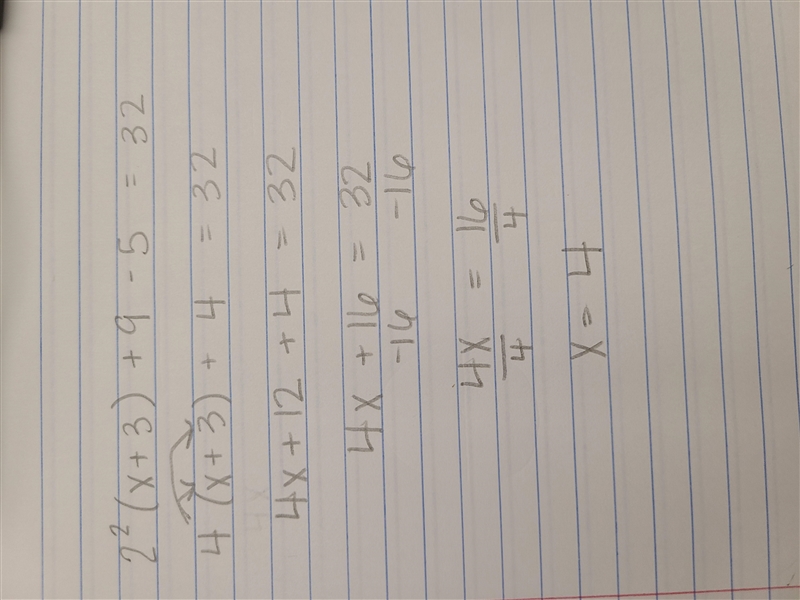 2²(x+3)+9-5 = 32
4(x+3)+4 = 32
4x+12+4 = 32
4x+16 = 32
-16 -16
4x = 16
4 4
x = 4